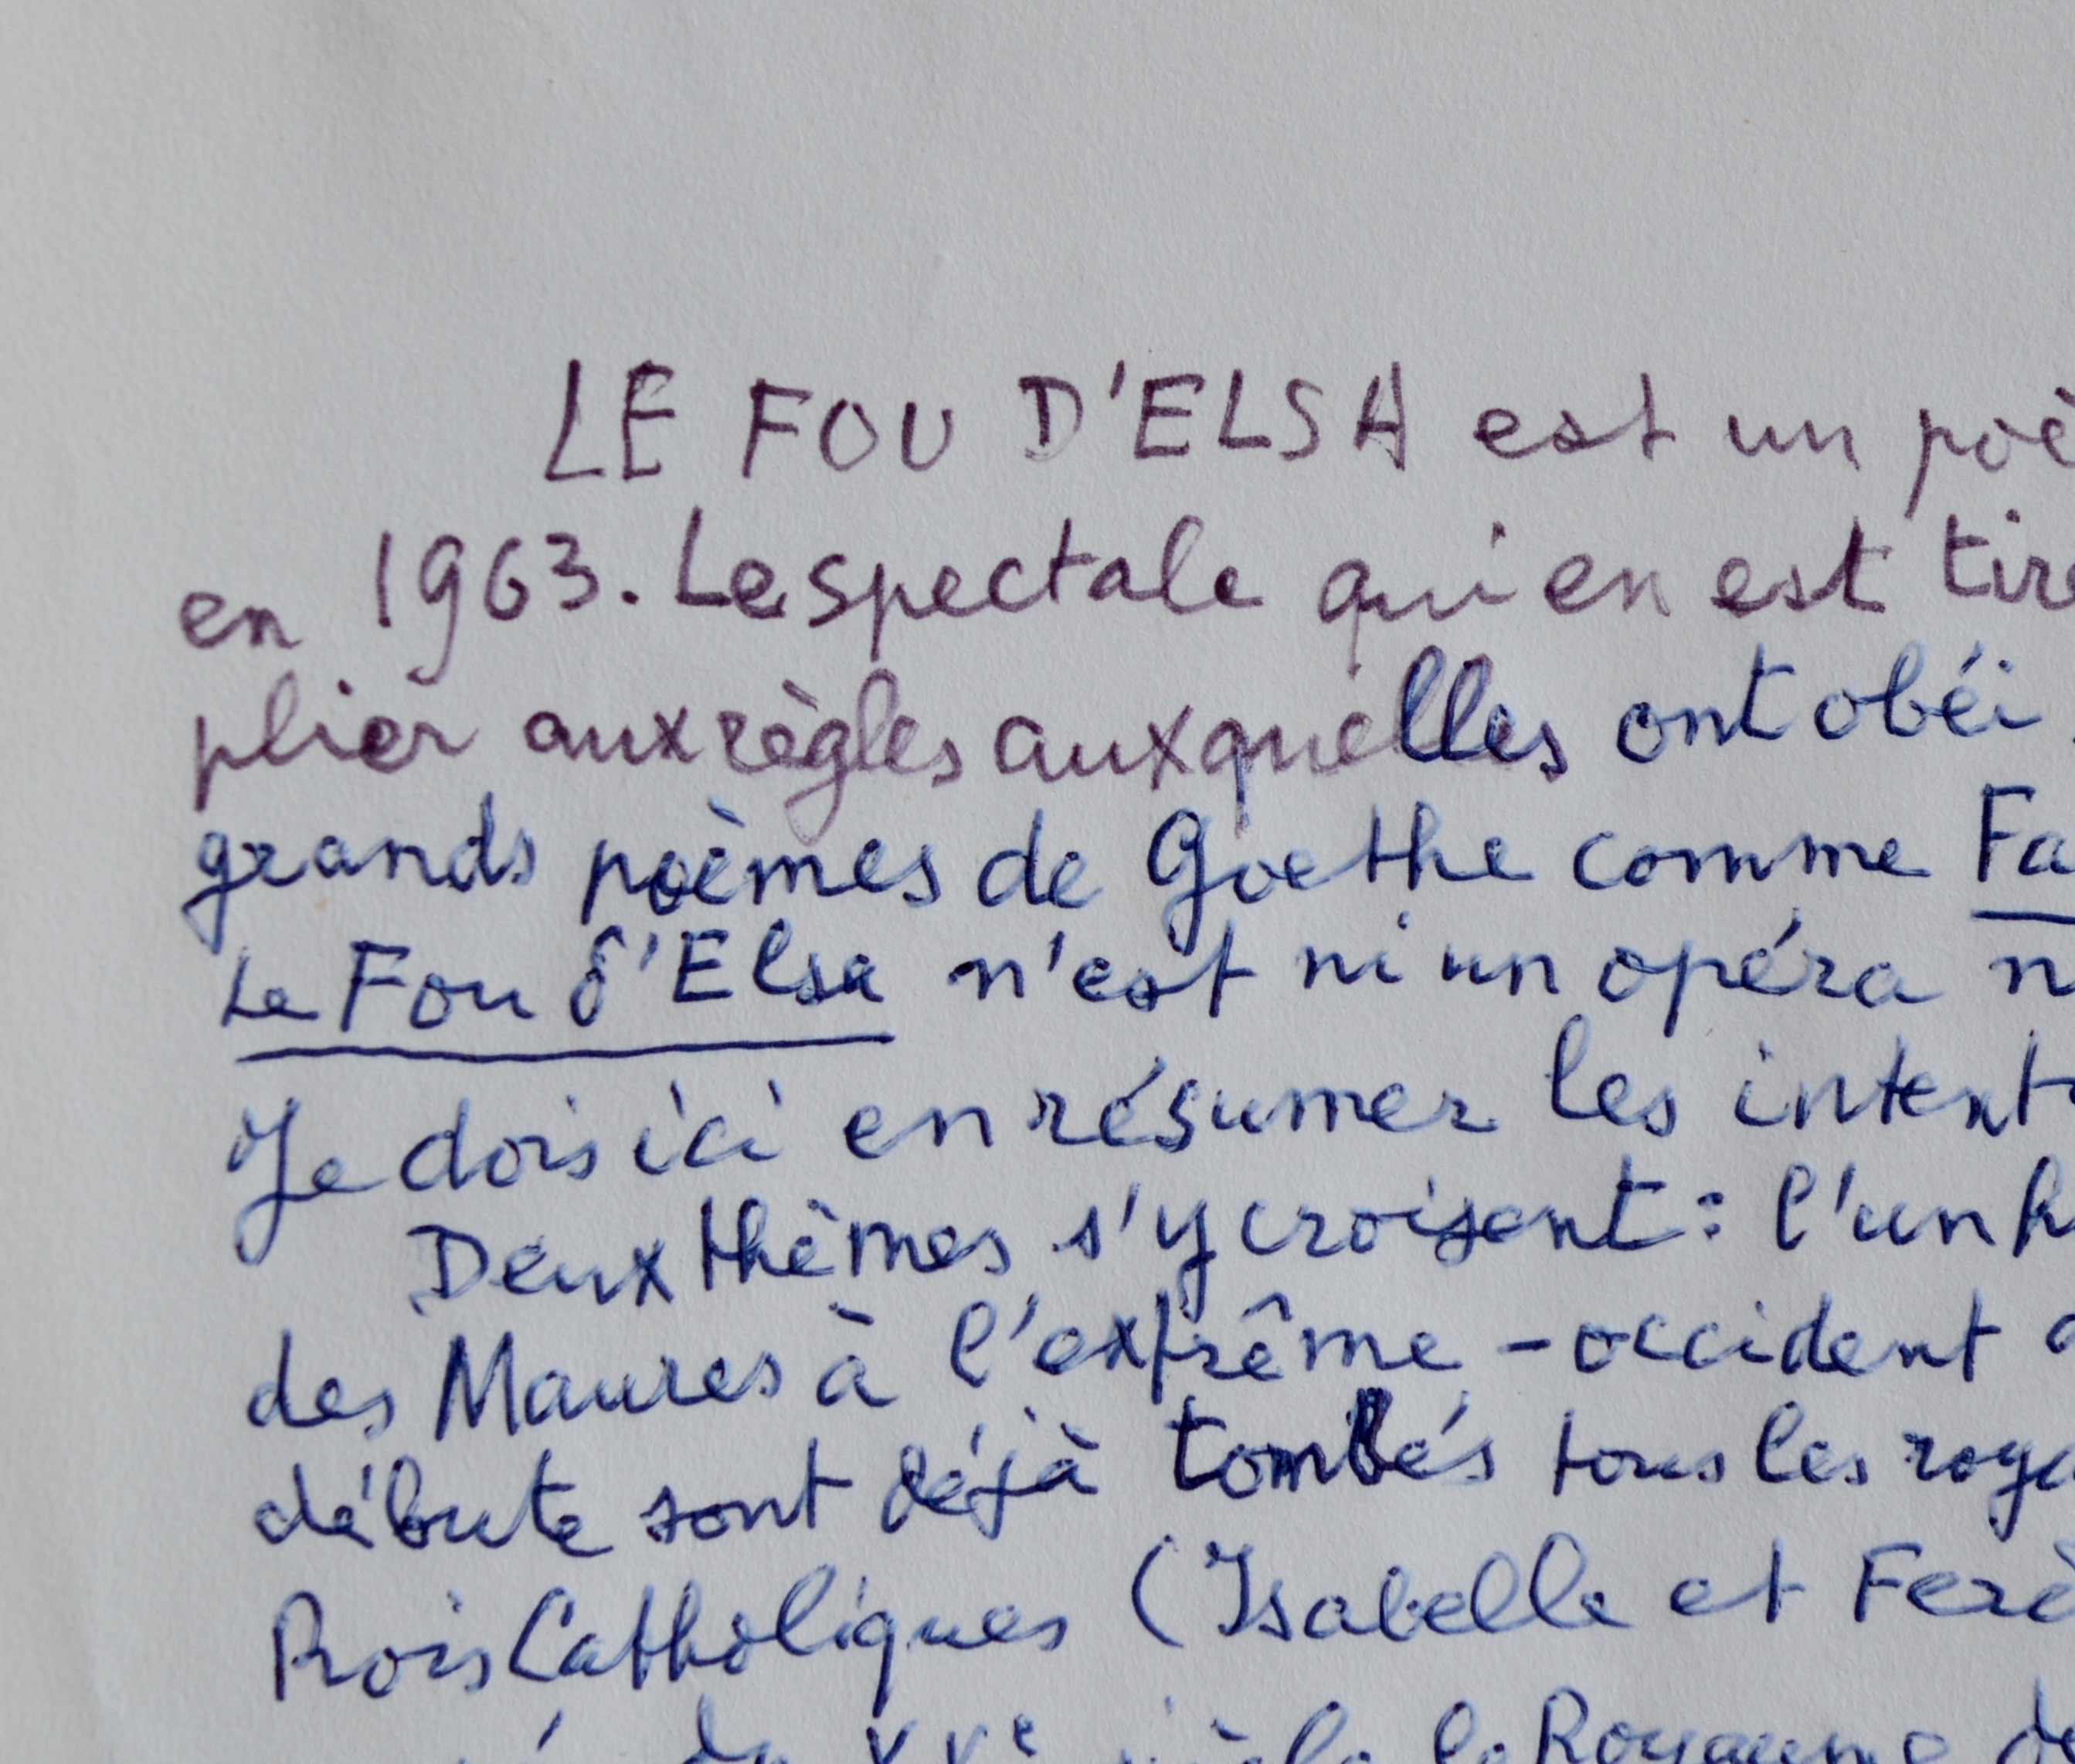 LE FOU D'ELSA est un poè
en 1963. Le spectale qui en est tiré
plier aux règles auxquelles ont obéi
grands poèmes de Goethe comme Fa
Le Fou d'Elsa n'est ni un opéra n
Je dois ici en résumer les intent
Deux thèmes s'y croisent : l'un h
des Maures à l'extrême-occident
débute sont déjà tombés tous les roya
Rois Catholiques (Isabelle et Fer
du XVe siècle le Royaume de